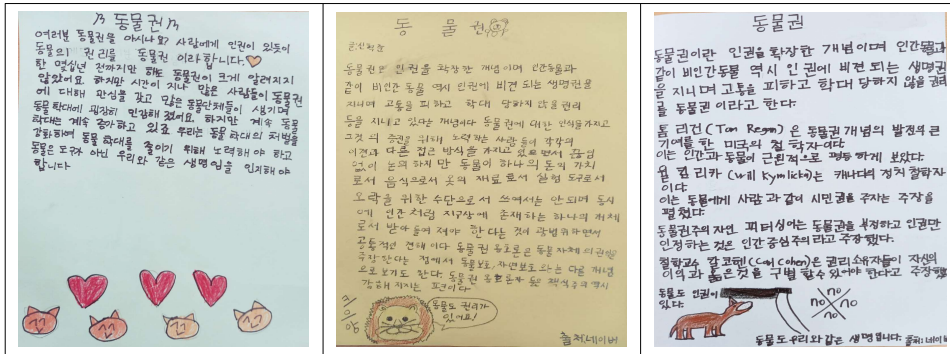 동물권
여러분 동물권을 아시나요? 사람에게 인권이 있듯이
동물의 권리를 동물권 이라 합니다.
한 몇십년 전까지만 해도 동물권이 크게 알려지지
않았어요. 하지만 시간이 지나 많은 사람들이 동물권
에 대해 관심을 갖고 많은 동물단체들이 생기며
동물 학대에 굉장히 민감해 졌어요. 하지만 계속 동물
학대는 계속 증가하고 있죠 우리는 동물 학대의 처벌을
강화하여 동물 학대를 줄이기 위해 노력해야 하고
동물은 도구가 아닌 우리와 같은 생명임을 인지해야
합니다
동물권
동물권은 인권을 확장한 개념이며 인간동물과
같이 비인간 동물 역시 인권에 비견 되는 생명권을
지니며 고통을 피하고 학대 당하지 않을 권리
등을 지니고 있다는 개념이다 동물권에 대한 인식을 가지고
그것의 증진을 위해 노력하는 사람들이 각각의
이견과 다른 접근 방식을 가지고 있으면서 끊임
없이 논의 하지만 동물이 하나의 돈의 가치
로서 음식으로서 옷의 재료로서 실험 도구로서
오락을 위한 수단으로서 쓰여서는 안되며 동시
에 인간처럼 지구상에 존재하는 하나의 개체
로서 받아들여 져야 한다는 것이 광범위하면서
공통적인 견해이다 동물권 옹호론은 동물 자체의 권리를
주장한다는 점에서 동물보호, 자연보호와는 다른 개념
으로 보기도 한다. 동물권 옹호론자 들은 채식주의 역시
강해지는 편이다
동물도 권리가
있어요!
출처:네이버
동물권
동물권이란 인권을 확장한 개념이며 인간동물과
같이 비인간동물 역시 인권에 비견되는 생명권
을 지니며 고통을 피하고 학대 당하지 않을 권리
를 동물권 이라고 한다.
톰 리건(Tom Regan)은 동물권 개념의 발전의 큰
기여를 한 미국의 철학자이다
이는 인간과 동물이 근원적으로 평등하게 보았다.
윌 킴리카(Will Kymlicka)는 캐나다의 정치철학자
이다
이는 동물에게 사람과 같이 시민권을 주자는 주장을
펼쳤다.
동물권주의 자인 피터싱어는 동물권을 부정하고 인권만
인정하는 것은 인간 중심주의라고 주장했다.
철학교수 칼코헨(Carl Cohen)은 권리소유자들이 자신의
이익과 옳은것을 구별 할수 있어야 한다고 주장했
동물도 인권이
있다.
no
no no
no
동물도 우리와 같은 생명 입니다. 출처:네이버